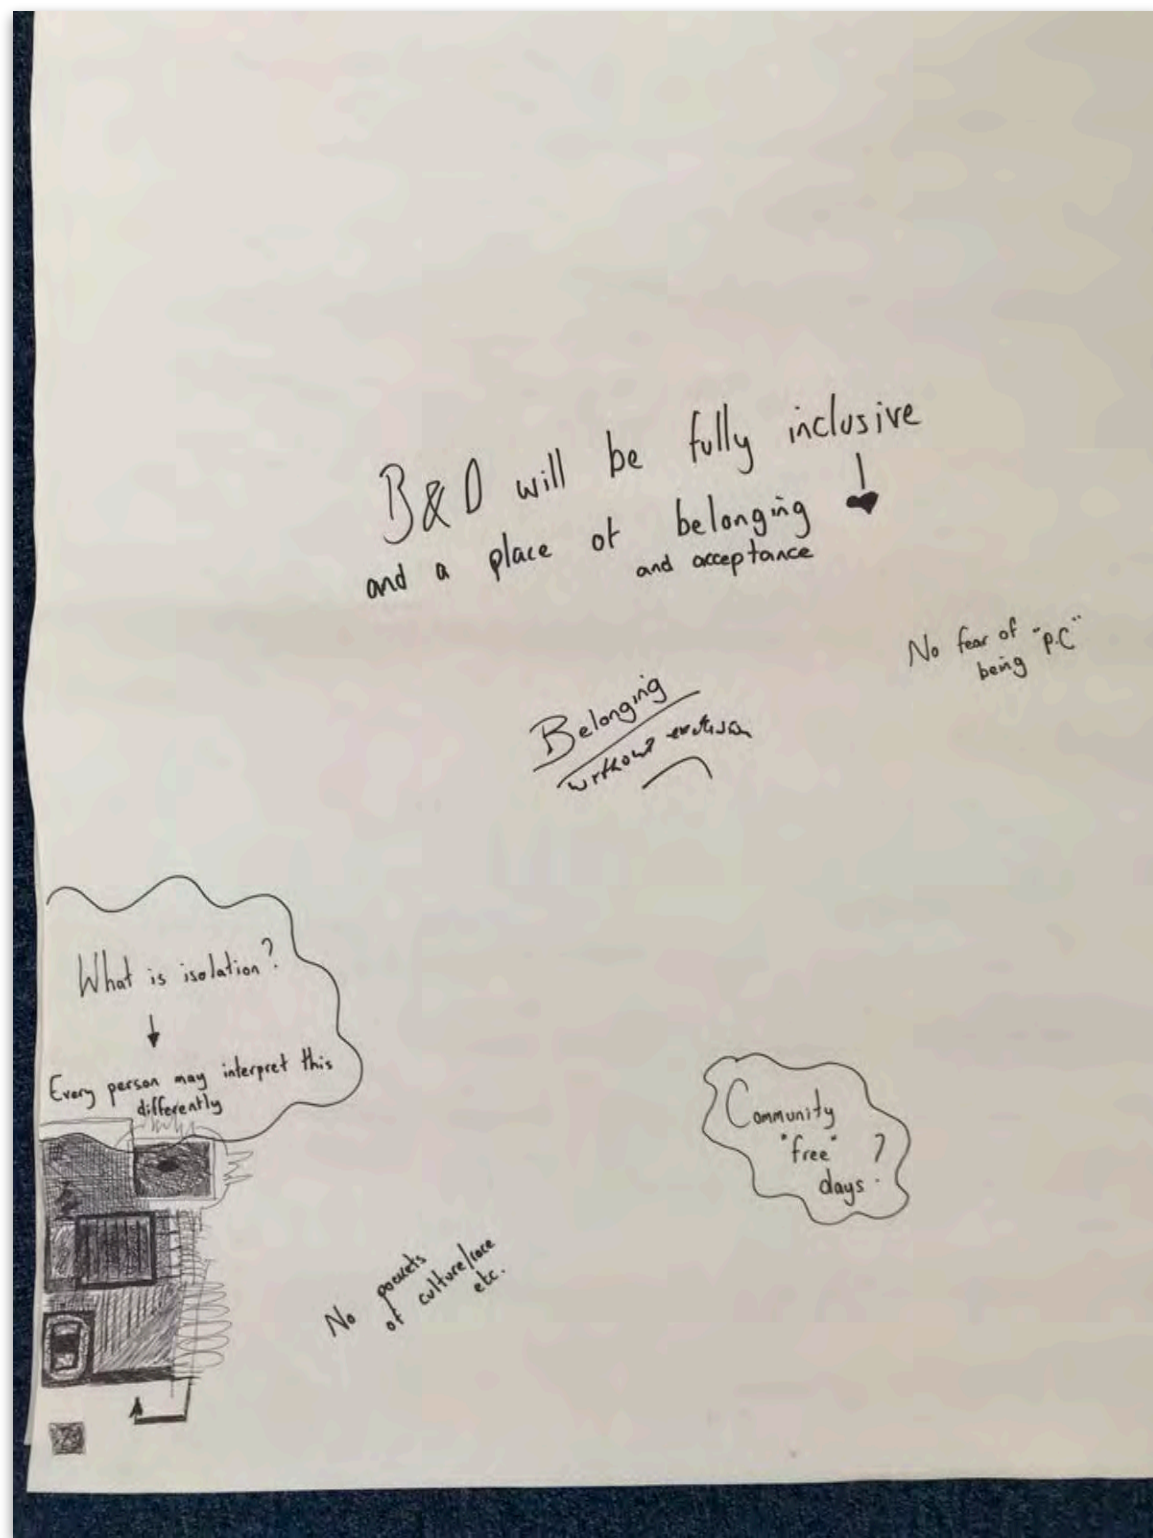 B&D will be fully inclusive
and a place of belonging
and acceptance
No fear of
being "P.C"
Belonging
without
What is isolation?
Every person may interpret this
differently
Community
"free" ?
days.
No pockets
of culture/race
etc.